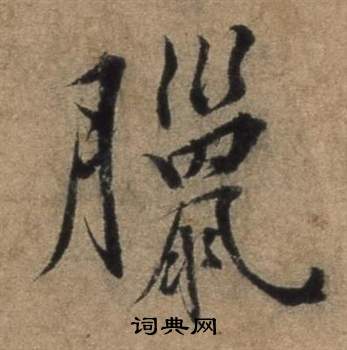 臘
词典网